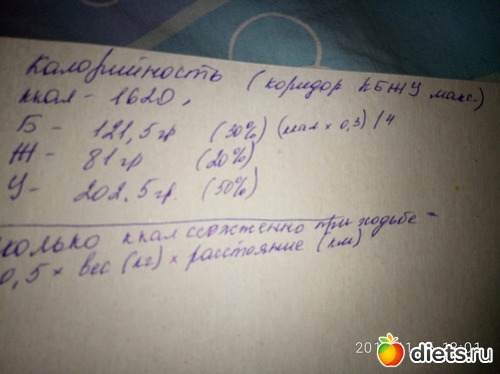 Калорийность (коридор КБЖУ макс.)
ккал - 1620,
Б - 121,5 гр (30%) (ккал х 0,3) / 4
Ж - 81 гр (20%)
У - 202.5 гр. (50%)
колько ккал сожженно при ходьбе =
0,5 × вес (кг) × расстояние (км)
diets.ru